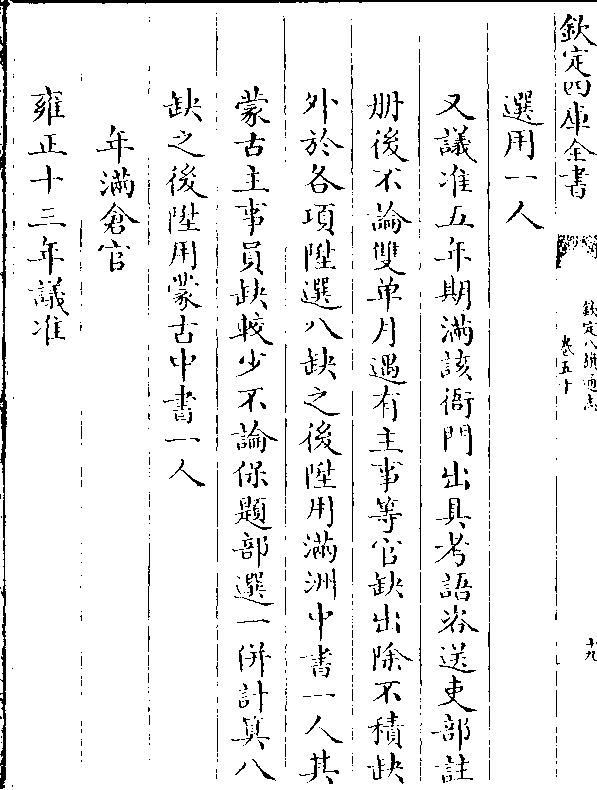 欽定四庫全書
欽定八旗通志
卷五十
十九
選用一人
又議准五年期滿該衙門出具考語咨送吏部註
册後不論雙单月遇有主事等官缺出除不積缺
外於各項陞選八缺之後陞用滿洲中書一人其
蒙古主事員缺較少不論保題部選一併計算八
缺之後陞用蒙古中書一人
年滿倉官
雍正十三年議准